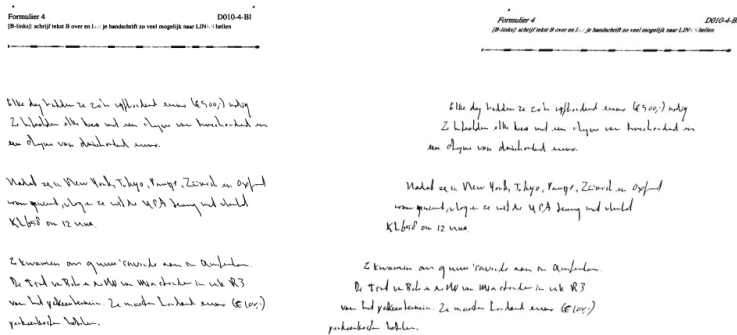 Formulier 4 D010-4-Bl
[B-links]: schrijf tekst B over en je handschrift zo veel mogelijk naar LINKS hellen
Elke dag hadden ze zo'n vijfhonderd euro (€500,-) nodig
Ze betaalden elke keer met een cheque van tweehonderd en
een cheque van driehonderd euro.
Nadat ze in New York, Tokyo, Parijs, Zürich en Oxford
waren geweest, vlogen ze met de USA terug met vlucht
KL658 om 12 uur.
Ze kwamen om 9 uur 's avonds aan in Amsterdam.
De Ford van Bob en de MG van Max stonden in vak R3
van het parkeerterrein. Ze moesten honderd euro (€100,-)
parkeerkosten betalen.
Formulier 4 D010-4-Bl
[B-links]: schrijf tekst B over en je handschrift zo veel mogelijk naar LINKS hellen
Elke dag hadden ze zo'n vijfhonderd euro (€500,-) nodig
Ze betaalden elke keer met een cheque van tweehonderd en
een cheque van driehonderd euro.
Nadat ze in New York, Tokyo, Parijs, Zürich en Oxford
waren geweest, vlogen ze met de USA terug met vlucht
KL658 om 12 uur.
Ze kwamen om 9 uur 's avonds aan in Amsterdam.
De Ford van Bob en de MG van Max stonden in vak R3
van het parkeerterrein. Ze moesten honderd euro (€100,-)
parkeerkosten betalen.